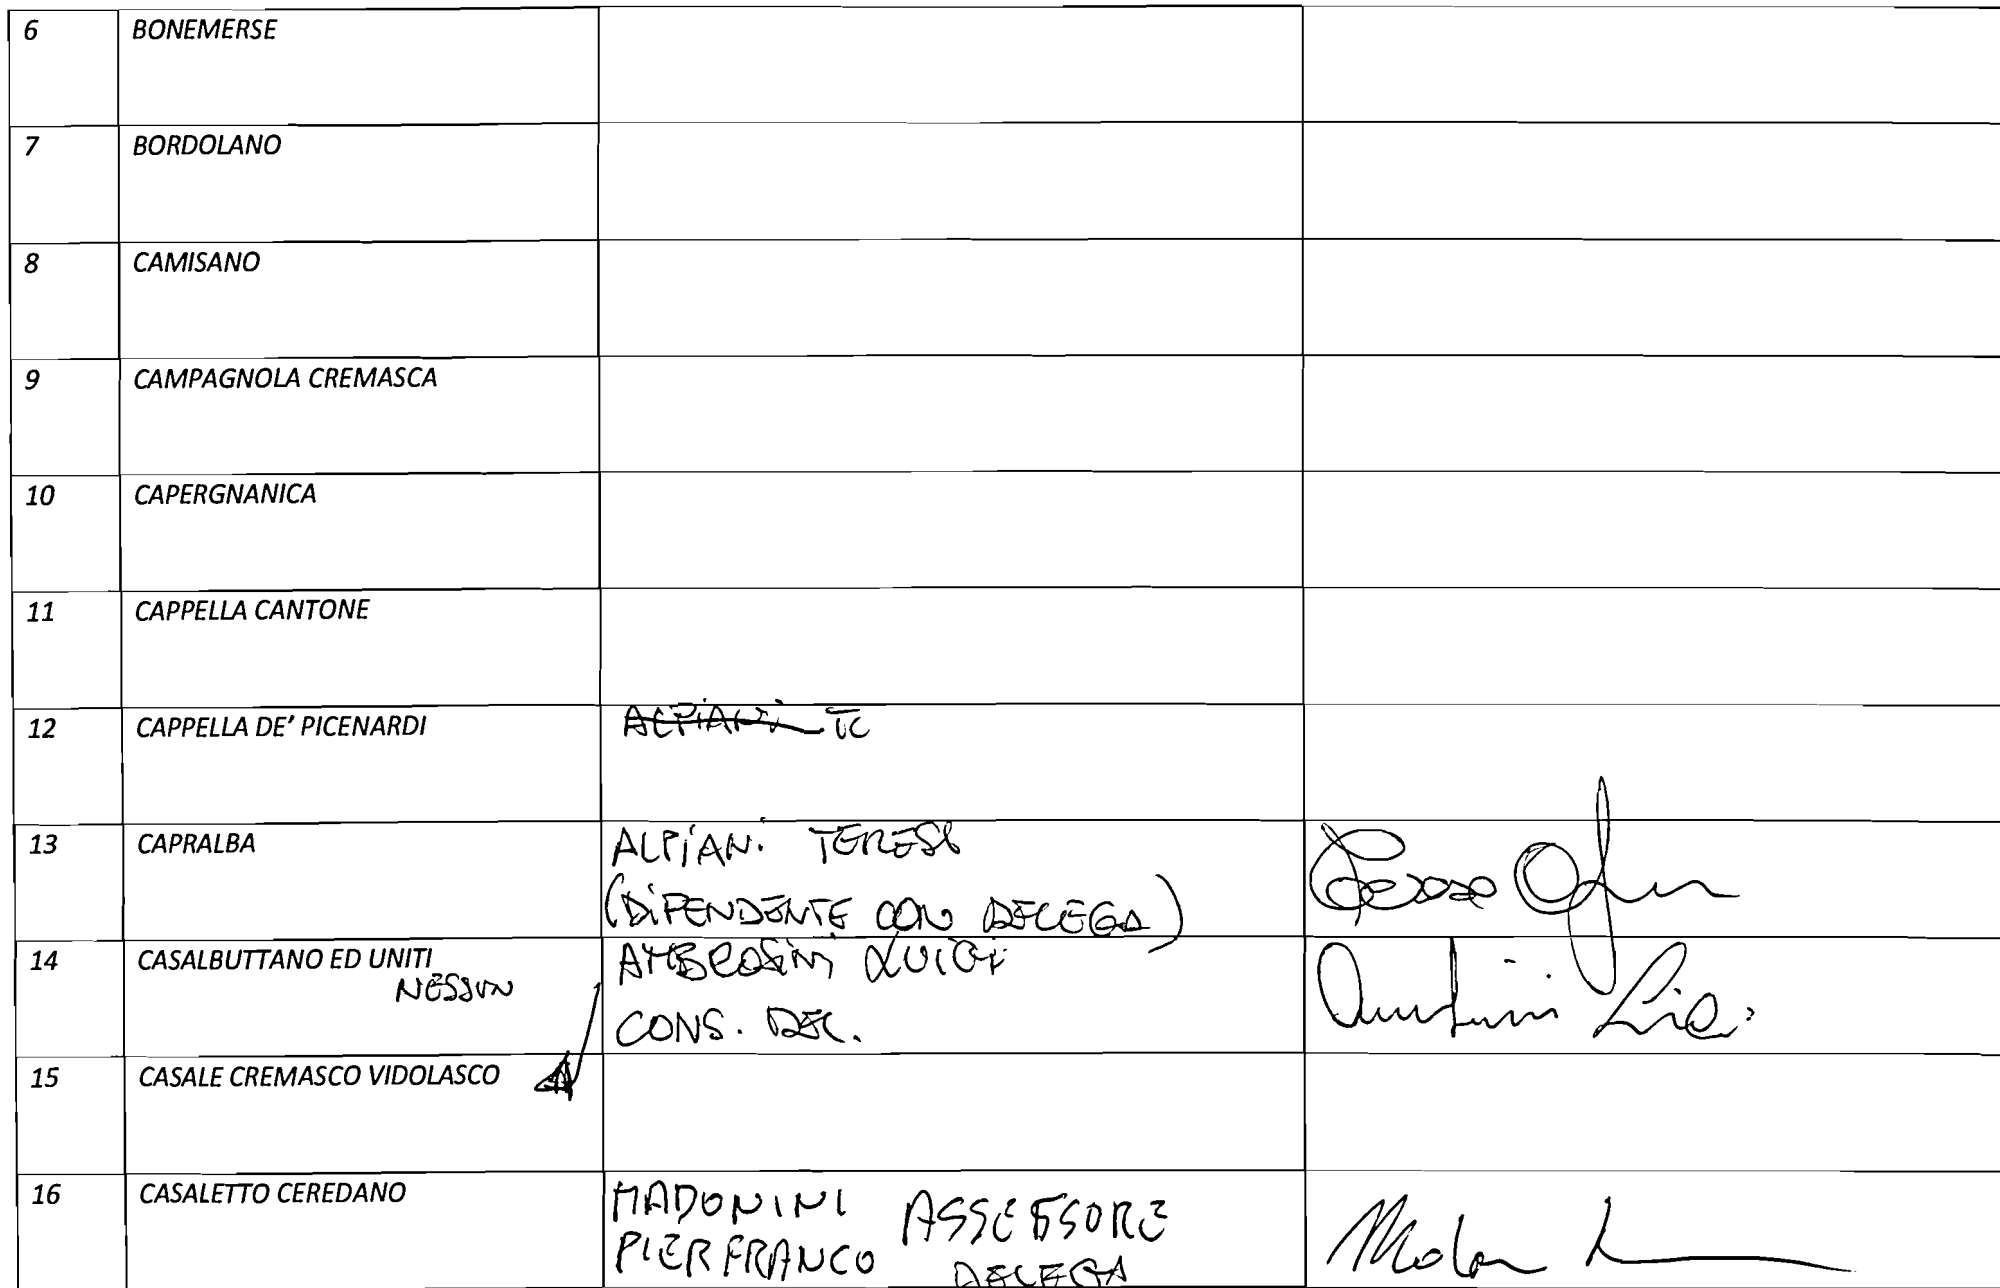 6 BONEMERSE
7 BORDOLANO
8 CAMISANO
9 CAMPAGNOLA CREMASCA
10 CAPERGNANICA
11 CAPPELLA CANTONE
12 CAPPELLA DE' PICENARDI ALPIANI TE
13 CAPRALBA ALPIANI TERESA
(DIPENDENTE CON DELEGA)
14 CASALBUTTANO ED UNITI AMBROSINI LUIGI
NESSUN
CONS. DEL.
15 CASALE CREMASCO VIDOLASCO
16 CASALETTO CEREDANO MADONINI ASSESSORE
PIERFRANCO DELEGA